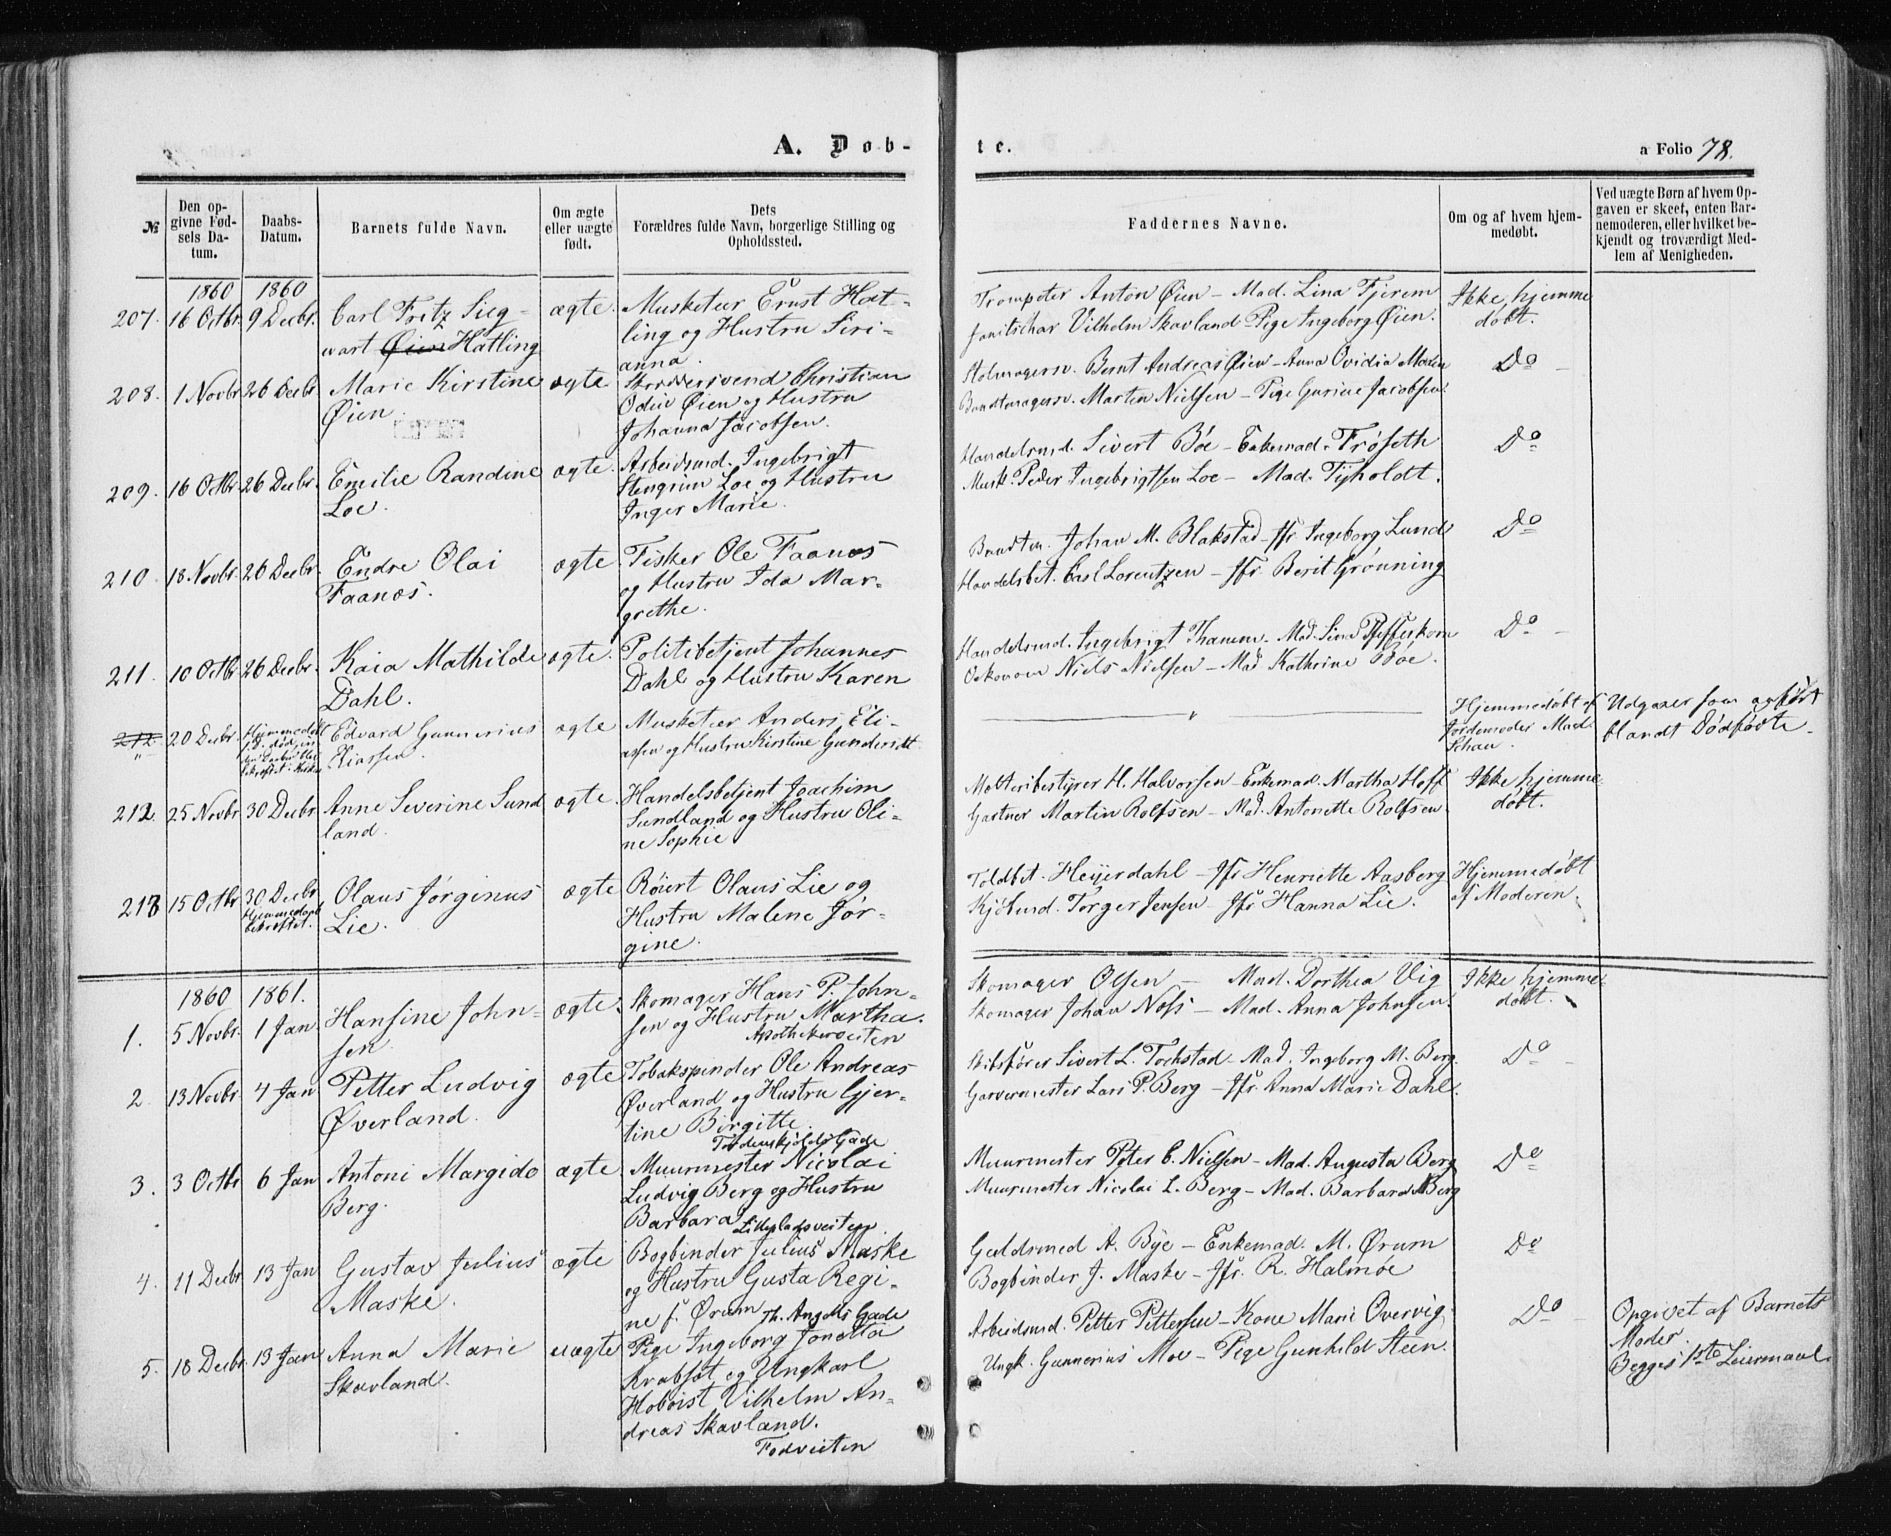 A. Døb-
te.
a Folio 78.
№
Den opgivne Fødsels Datum.
Daabs-Datum.
Barnets fulde Navn.
Om ægte eller uægte født.
Dets Forældres fulde Navn, borgerlige Stilling og Opholdssted.
Faddernes Navne.
Om og af hvem hjemmedøbt.
Ved uægte Børn af hvem Opgaven er skeet, enten Barnemoderen, eller hvilket bekjendt og troværdigt Medlem af Menigheden.
1860 1860
207. 16 Octbr. 9 Decbr. Carl Fritz Sieg- ægte. Musketeer Ernst Hat- Trompeter Anton Øien – Mad. Lina Fjerem Ikke hjemme
wart Øien Hatling ling og Hustru Siri- Janitschar Vilhelm Skavland Pige Ingeborg Øien. døbt.
anna.
208. 1 Novbr 26 Decbr Marie Kirstine ægte Skræddersvend Christian Stolmagersv. Bernt Andreas Øien – Anna Ovidia Do
Øien. Odin Øien og Hustru Bundtmagersv. Martin Nielsen – Pige Gurine Jacobsen.
Johanna Jacobsen.
209. 16 Octbr 26 Decbr. Emilie Randine ægte. Arbeidsmd. Ingebrigt Handelsmd. Sivert Bøe – Enkemad. Frøseth Do
Loe. Stengrim Loe og Hustru Musk. Peder Ingebrigtsen Loe – Mad. Tyholdt.
Inger Marie.
210. 18 Novbr. 26 Decbr. Endre Olai ægte Fisker Ole Faanæs Bundtm. Johan M. Blakstad – Jfr. Ingeborg Lund Do
Faanæs. og Hustru Ida Mar- Handelsbet. Carl Lorentzen – Jfr. Berit Grønning
grethe.
211. 10 Octbr 26 Decbr. Kaia Mathilde ægte. Politibetjent Johannes Handelsmd. Ingebrigt Thamm – Mad. Sina Pfefferkorn Do
Dahl. Dahl og Hustru Karen Oekonom Niels Nielsen – Mad Kathrine Bøe.
212 20 Decbr. Hjemmedøbt Edvard Gunnerius ægte Musketeer Anders Eli- Hjemmedøbt af Udgaaer som anført
Eliassen. assen og Hustru Kirstine Jordemoder Mad blandt Dødfødte.
Schau.
212 25 Novbr 30 Decbr. Anne Severine Sund ægte. Handelsbetjent Joachim H. Halvorsen – Enkemad. Martha Hoff Ikke hjemme
land. Sundland og Hustru Oli- Gartner Martin Rolfsen – Mad. Antonette Rolfsen. døbt.
ne Sophie
213 15 Octbr 30 Decbr Olaus Jørginus ægte Røiert Olaus Lie og Toldbet. Heyerdahl – Jfr Henriette Aasberg Hjemmedøbt
Hjemmedaab bekræftet. Lie. Hustru Malene Jør- Kjøbmd. Torger Jensen Jfr Hanna Lie. af Moderen.
gine.
1860 1861.
1. 5 Novbr. 1 Jan Hansine John- ægte. Skomager Hans P. John- Skomager Olsen – Mad. Dorthea Vig Ikke hjemme
sen sen og Hustru Martha. Skomager Johan Noss – Mad. Anna Johnsen. døbt.
Apothekerveiten
2. 13 Novbr. 4 Jan Petter Ludvig ægte Tobakspinder Ole Andreas Skibsfører Sivert L. Torhstad – Mad. Ingeborg M. Berg. Do
Øverland. Øverland og Hustru Gjer- Garvermester Lars P. Berg – Jfr. Anna Marie Dahl.
tine Birgitte.
Tordenskjolds Gade
3. 3 Octbr 6 Jan Antoni Margido ægte. Muurmester Nicolai Muurmester Peter C. Nielsen – Mad. Augusta Berg Do
Berg. Ludvig Berg og Hustru Muurmester Nicolai L. Berg – Mad. Barbara Berg
Barbara Lilleplads veiten.
4. 11 Decbr 13 Jan Gustav Julius ægte Bogbinder Julius Maske Guldsmed A. Bye – Enkemad. M. Ørum Do
Maske. og Hustru Gusta Regi- Bogbinder J. Maske – Jfr. R. Halmøe
ne f. Ørum Th. Angells Gade
5. 18 Decbr 13 Jan Anna Marie uægte Pige Ingeborg Jonetta Arbeidsmd. Petter Pettersen – Kone Marie Overvig Do Opgivet af Barnets
Skavland. Krabsøt og Ungkarl Ungk. Gunnerius Moe – Pige Gunhild Steen. Moder.
Hoboist Vilhelm An- Begges 1ste Leiermaal.
dreas Skavland.
Fodveiten